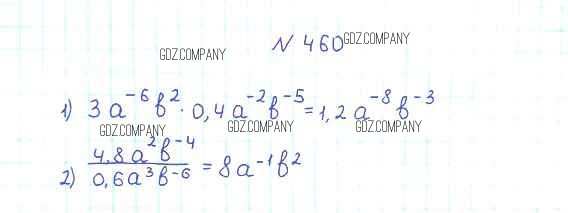 N 460 GDZ.COMPANY
GDZ.COMPANY
1) 3a⁻⁶b² · 0,4a⁻²b⁻⁵ = 1,2a⁻⁸b⁻³
GDZ.COMPANY GDZ.COMPANY GDZ.COMPANY
2) 4,8a²b⁻⁴ / 0,6a³b⁻⁶ = 8a⁻¹b²